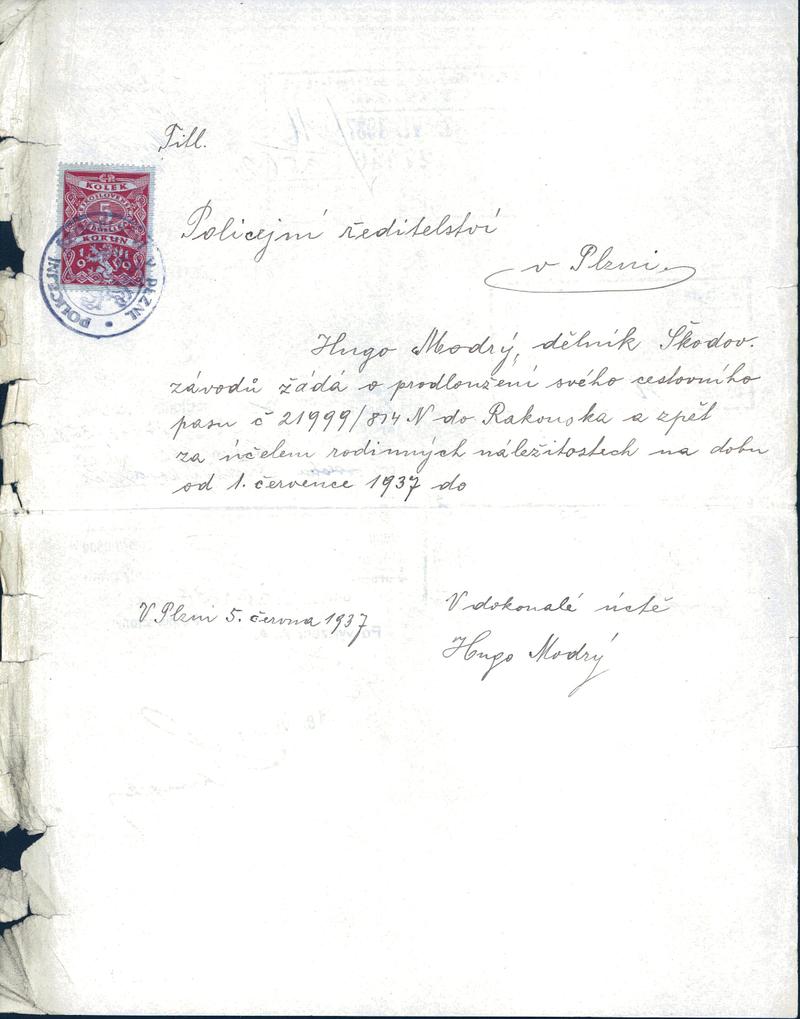 Titl.
ČR
KOLEK
5
KORUN
1919
POLICEJNÍ
PLZNI
Policejní ředitelství
v Plzni.
Hugo Modrý, dělník Škodov.
závodů žádá o prodloužení svého cestovního
pasu č 21999/814 N do Rakouska a zpět
za účelem rodinných náležitostech na dobu
od 1. července 1937 do
V Plzni 5. června 1937
V dokonalé úctě
Hugo Modrý